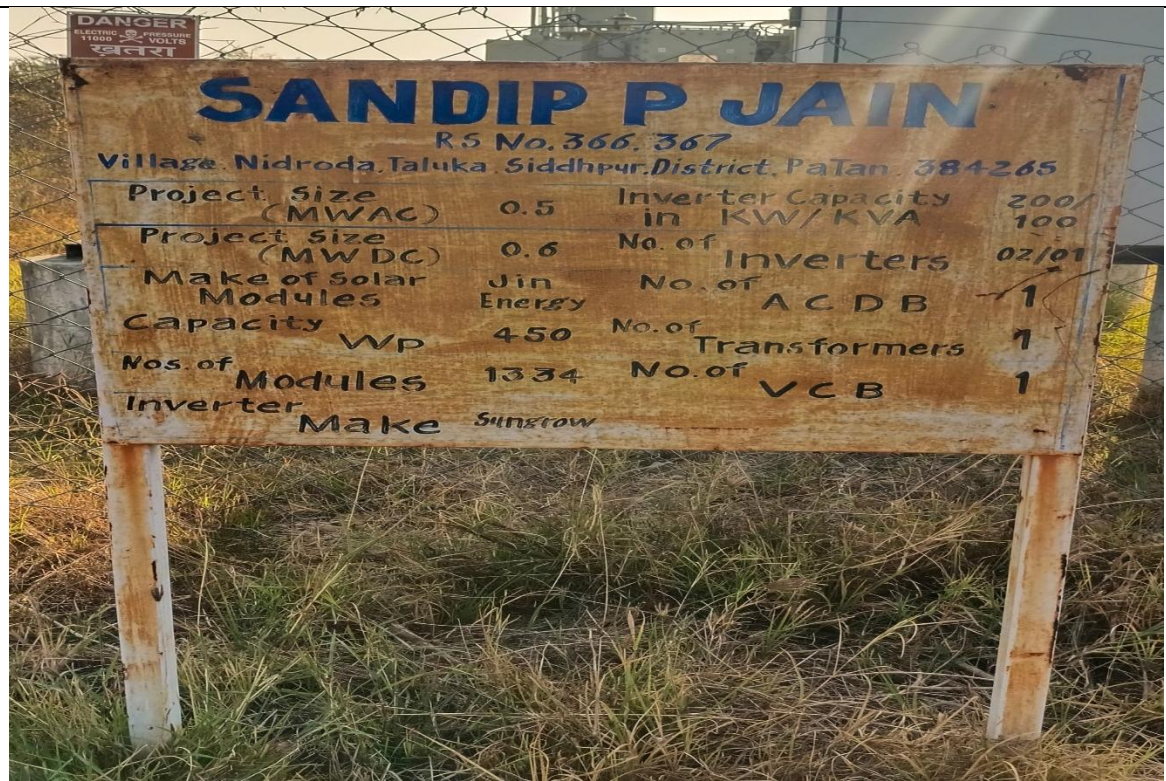 DANGER
ELECTRIC PRESSURE
11000 VOLTS
खतरा
SANDIP P JAIN
RS No. 366, 367
Village. Nidroda, Taluka. Siddhpur. District. PaTan. 384265
Project Size (MWAC) 0.5 Inverter Capacity in KW/KVA 200/100
Project Size (MW DC) 0.6 No. of Inverters 02/01
Make of Solar Modules Jin Energy No. of ACDB 1
Capacity Wp 450 No. of Transformers 1
Nos. of Modules 1334 No. of VCB 1
Inverter Make Sungrow